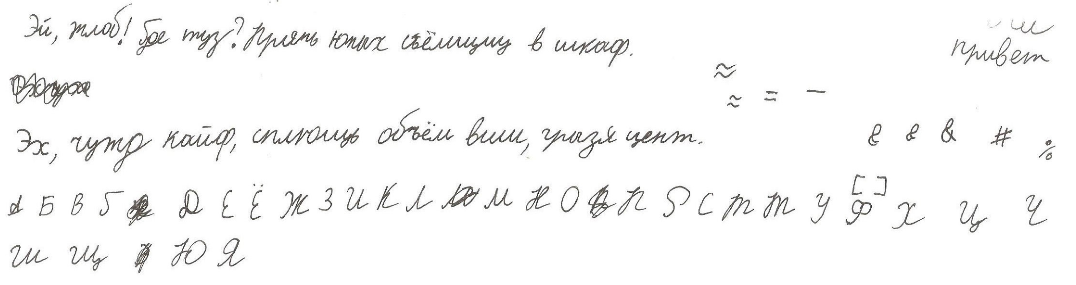 Эй, жлоб! Где туз? Прячь юных съёмщиц в шкаф.
привет
≈
≈ = —
Эх, чужд кайф, сплющь объём вши, грызя цент.
& & & # %
[ ]
А Б В Г Д Е Ё Ж З И К Л М Н О П Р С Т Т У Ф Х Ц Ч
Ш Щ Ю Я